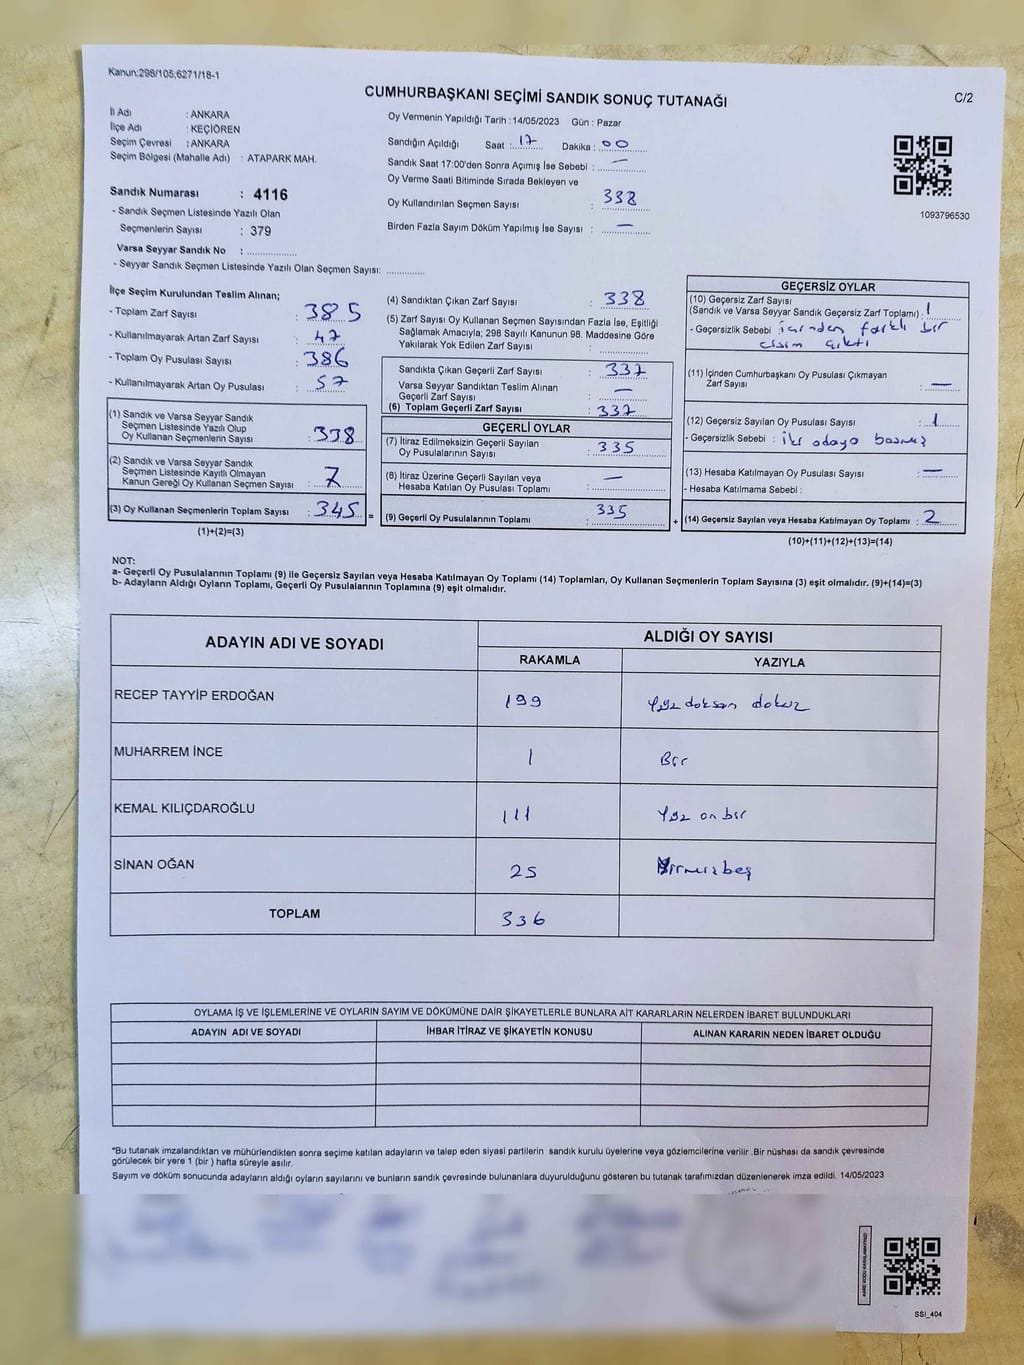 Kanun:298/105,6271/18-1
C/2
CUMHURBAŞKANI SEÇİMİ SANDIK SONUÇ TUTANAĞI
İl Adı : ANKARA
İlçe Adı : KEÇİÖREN
Seçim Çevresi : ANKARA
Seçim Bölgesi (Mahalle Adı) : ATAPARK MAH.
Sandık Numarası : 4116
- Sandık Seçmen Listesinde Yazılı Olan
Seçmenlerin Sayısı : 379
Varsa Seyyar Sandık No :
- Seyyar Sandık Seçmen Listesinde Yazılı Olan Seçmen Sayısı:
Oy Vermenin Yapıldığı Tarih :14/05/2023 Gün : Pazar
Sandığın Açıldığı Saat : 17 Dakika : 00
Sandık Saat 17:00'den Sonra Açımış İse Sebebi : —
Oy Verme Saati Bitiminde Sırada Bekleyen ve
Oy Kullandırılan Seçmen Sayısı : 338
Birden Fazla Sayım Döküm Yapılmış İse Sayısı : —
1093796530
İlçe Seçim Kurulundan Teslim Alınan;
- Toplam Zarf Sayısı : 385
- Kullanılmayarak Artan Zarf Sayısı : 47
- Toplam Oy Pusulası Sayısı : 386
- Kullanılmayarak Artan Oy Pusulası : 57
(1) Sandık ve Varsa Seyyar Sandık
Seçmen Listesinde Yazılı Olup
Oy Kullanan Seçmenlerin Sayısı : 338
(2) Sandık ve Varsa Seyyar Sandık
Seçmen Listesinde Kayıtlı Olmayan
Kanun Gereği Oy Kullanan Seçmen Sayısı : 7
(3) Oy Kullanan Seçmenlerin Toplam Sayısı : 345 =
(1)+(2)=(3)
(4) Sandıktan Çıkan Zarf Sayısı : 338
(5) Zarf Sayısı Oy Kullanan Seçmen Sayısından Fazla İse, Eşitliği
Sağlamak Amacıyla; 298 Sayılı Kanunun 98. Maddesine Göre
Yakılarak Yok Edilen Zarf Sayısı :
Sandıkta Çıkan Geçerli Zarf Sayısı : 337
Varsa Seyyar Sandıktan Teslim Alınan
Geçerli Zarf Sayısı : —
(6) Toplam Geçerli Zarf Sayısı : 337
GEÇERLİ OYLAR
(7) İtiraz Edilmeksizin Geçerli Sayılan
Oy Pusulalarının Sayısı : 335
(8) İtiraz Üzerine Geçerli Sayılan veya
Hesaba Katılan Oy Pusulası Toplamı : —
(9) Geçerli Oy Pusulalarının Toplamı : 335 +
GEÇERSİZ OYLAR
(10) Geçersiz Zarf Sayısı
(Sandık ve Varsa Seyyar Sandık Geçersiz Zarf Toplamı) : 1
- Geçersizlik Sebebi : içinden farklı bir
cisim çıktı
(11) İçinden Cumhurbaşkanı Oy Pusulası Çıkmayan
Zarf Sayısı : —
(12) Geçersiz Sayılan Oy Pusulası Sayısı : 1
- Geçersizlik Sebebi : iki adaya basmış
(13) Hesaba Katılmayan Oy Pusulası Sayısı : —
- Hesaba Katılmama Sebebi :
(14) Geçersiz Sayılan veya Hesaba Katılmayan Oy Toplamı : 2
(10)+(11)+(12)+(13)=(14)
NOT:
a- Geçerli Oy Pusulalarının Toplamı (9) ile Geçersiz Sayılan veya Hesaba Katılmayan Oy Toplamı (14) Toplamları, Oy Kullanan Seçmenlerin Toplam Sayısına (3) eşit olmalıdır. (9)+(14)=(3)
b- Adayların Aldığı Oyların Toplamı, Geçerli Oy Pusulalarının Toplamına (9) eşit olmalıdır.
ADAYIN ADI VE SOYADI ALDIĞI OY SAYISI
RAKAMLA YAZIYLA
RECEP TAYYİP ERDOĞAN 199 Yüz doksan dokuz
MUHARREM İNCE 1 Bir
KEMAL KILIÇDAROĞLU 111 Yüz on bir
SİNAN OĞAN 25 Yirmibeş
TOPLAM 336
OYLAMA İŞ VE İŞLEMLERİNE VE OYLARIN SAYIM VE DÖKÜMÜNE DAİR ŞİKAYETLERLE BUNLARA AİT KARARLARIN NELERDEN İBARET BULUNDUKLARI
ADAYIN ADI VE SOYADI İHBAR İTİRAZ VE ŞİKAYETİN KONUSU ALINAN KARARIN NEDEN İBARET OLDUĞU
*Bu tutanak imzalandıktan ve mühürlendikten sonra seçime katılan adayların ve talep eden siyasi partilerin sandık kurulu üyelerine veya gözlemcilerine verilir .Bir nüshası da sandık çevresinde
görülecek bir yere 1 (bir ) hafta süreyle asılır.
Sayım ve döküm sonucunda adayların aldığı oyların sayılarını ve bunların sandık çevresinde bulunanlara duyurulduğunu gösteren bu tutanak tarafımızdan düzenlenerek imza edildi. 14/05/2023
SSI_404